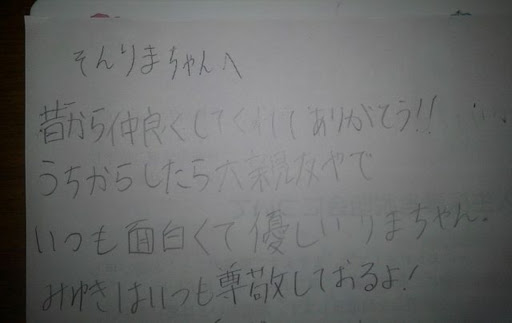 そんりまちゃんへ
昔から仲良くしてくれてありがとう!!
うちからしたら大親友やで
いつも面白くて優しいりまちゃん。
みゆきはいつも尊敬しておるよ!